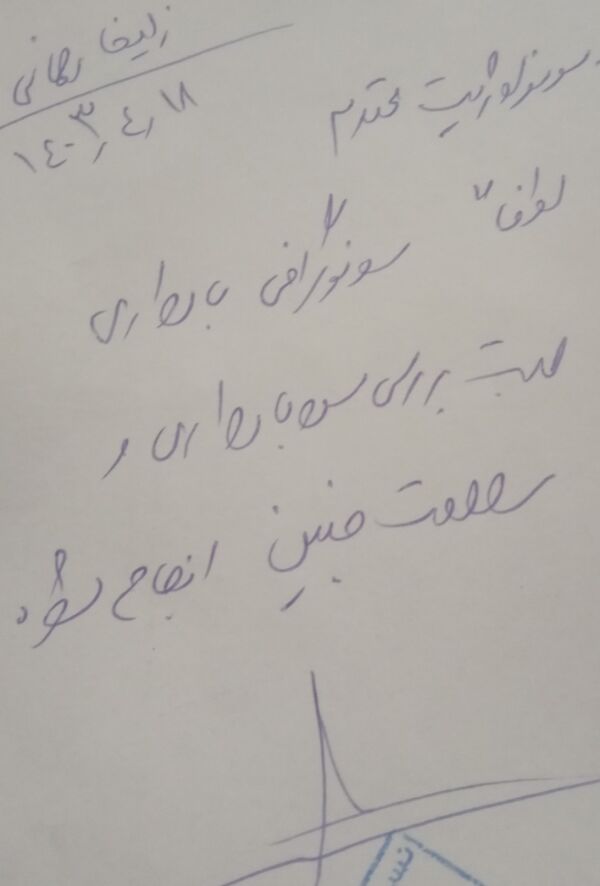 زلیخا رحمانی
۱۴۰۳/۴/۱۸
سونولوژیست محترم
لطفا"
سونوگرافی بارداری
جهت بررسی سن بارداری و
سلامت جنین انجام شود.